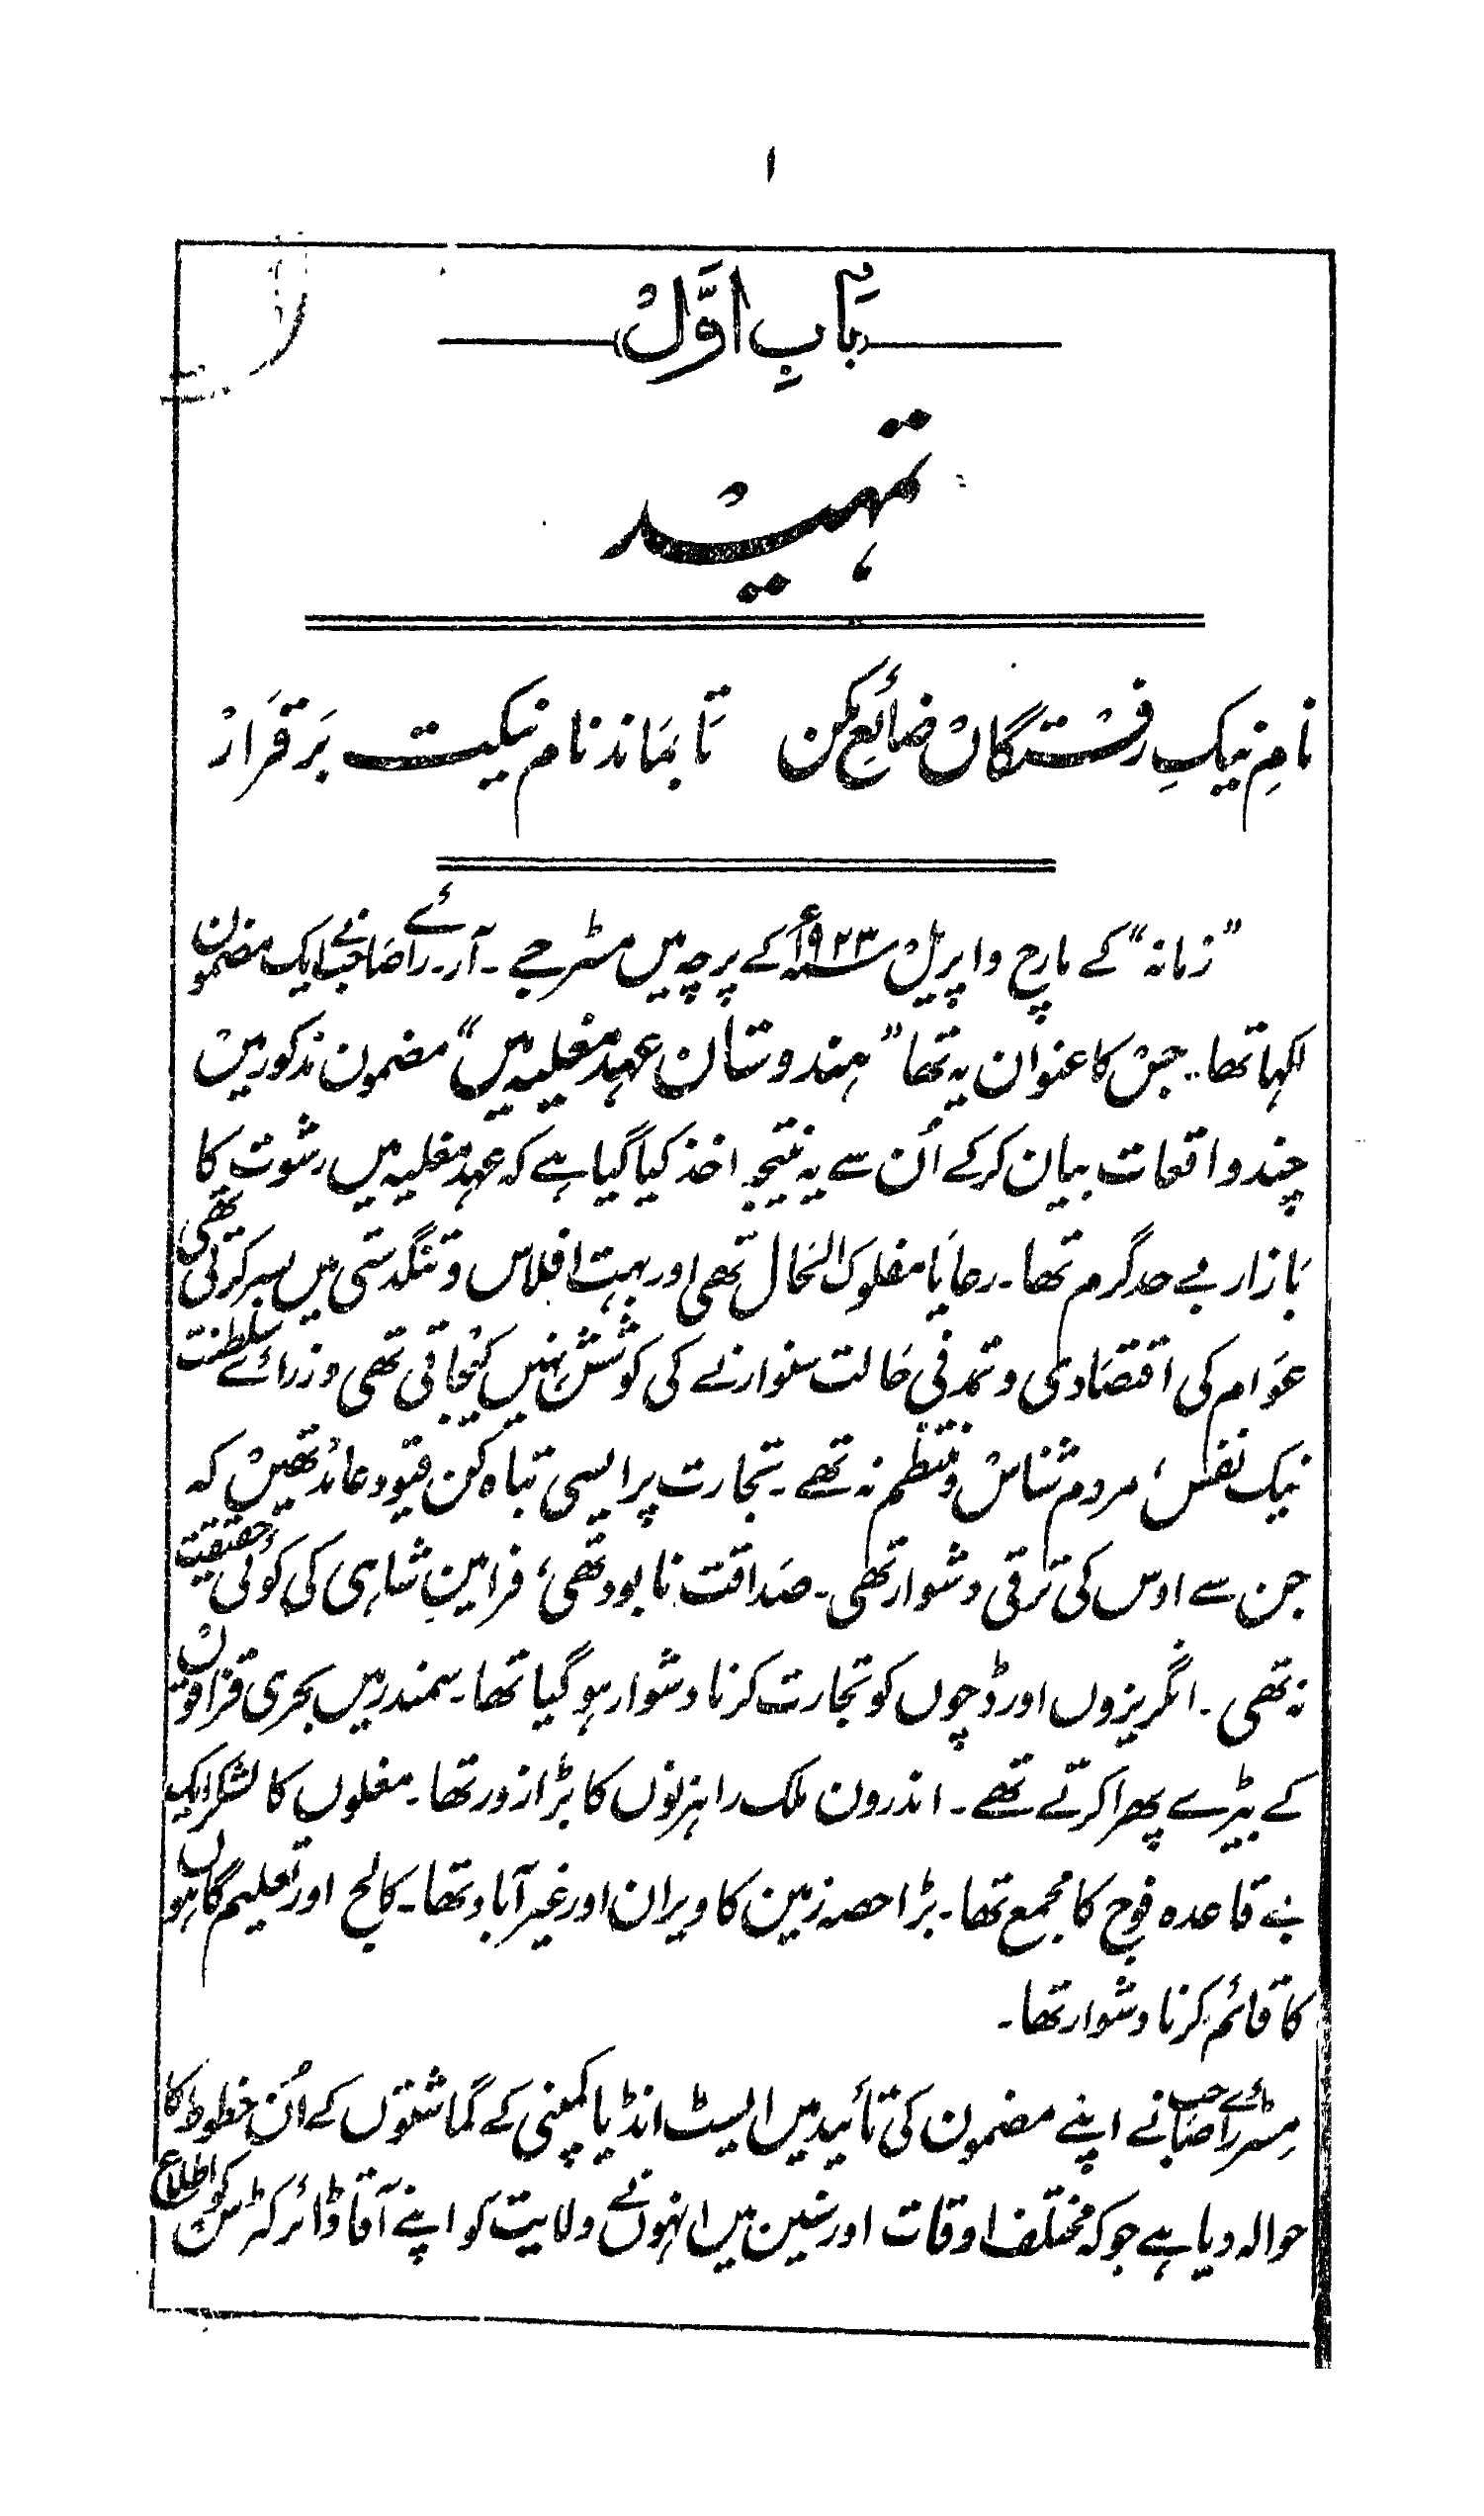 ۱
بابِ اوّل
تمہید
نامِ نیکِ رفتگاں ضائع مکن تا بماند نام نیکت برقرار
”زمانہ“ کے مارچ و اپریل ۱۹۲۳ء کے پرچہ میں مسٹر جے۔ آر۔ رائے صاحب نے ایک مضمون
لکہا تھا۔ جس کا عنوان یہ تھا ”ہندوستان عہد مغلیہ میں“ مضمون مذکور میں
چند واقعات بیان کرکے اُن سے یہ نتیجہ اخذ کیا گیا ہے کہ عہد مغلیہ میں رشوت کا
بازار بے حد گرم تھا۔ رعایا مفلوک الحال تھی اور بہت افلاس و تنگدستی میں بسر کرتی تھی
عوام کی اقتصادی و تمدنی حالت سنوارنے کی کوشش نہیں کیجاتی تھی وزرائے سلطنت
نیک نفس، مردم شناس و منتظم نہ تھے۔ تجارت پر ایسی تباہ کن قیود عائد تھیں کہ
جن سے اوس کی ترقی دشوار تھی۔ صداقت نابود تھی، فرامینِ شاہی کی کوئی حقیقت
نہ تھی۔ انگریزوں اور ڈچوں کو تجارت کرنا دشوار ہو گیا تھا۔ سمندر میں بحری قزاقوں
کے بیڑے پھرا کرتے تھے۔ اندرون ملک راہزنوں کا بڑا زور تھا۔ مغلوں کا لشکر ایک
بے قاعدہ فوج کا مجمع تھا۔ بڑا حصہ زمین کا ویران اور غیر آباد تھا۔ کالج اور تعلیم گاہوں
کا قائم کرنا دشوار تھا۔
مسٹر رائے صاحب نے اپنے مضمون کی تائید میں ایسٹ انڈیا کمپنی کے گماشتوں کے اُن خطوط کا
حوالہ دیا ہے جو کہ مختلف اوقات اور سنین میں انہوں نے ولایت کو اپنے آقا ڈائرکٹرس کو اطلاع